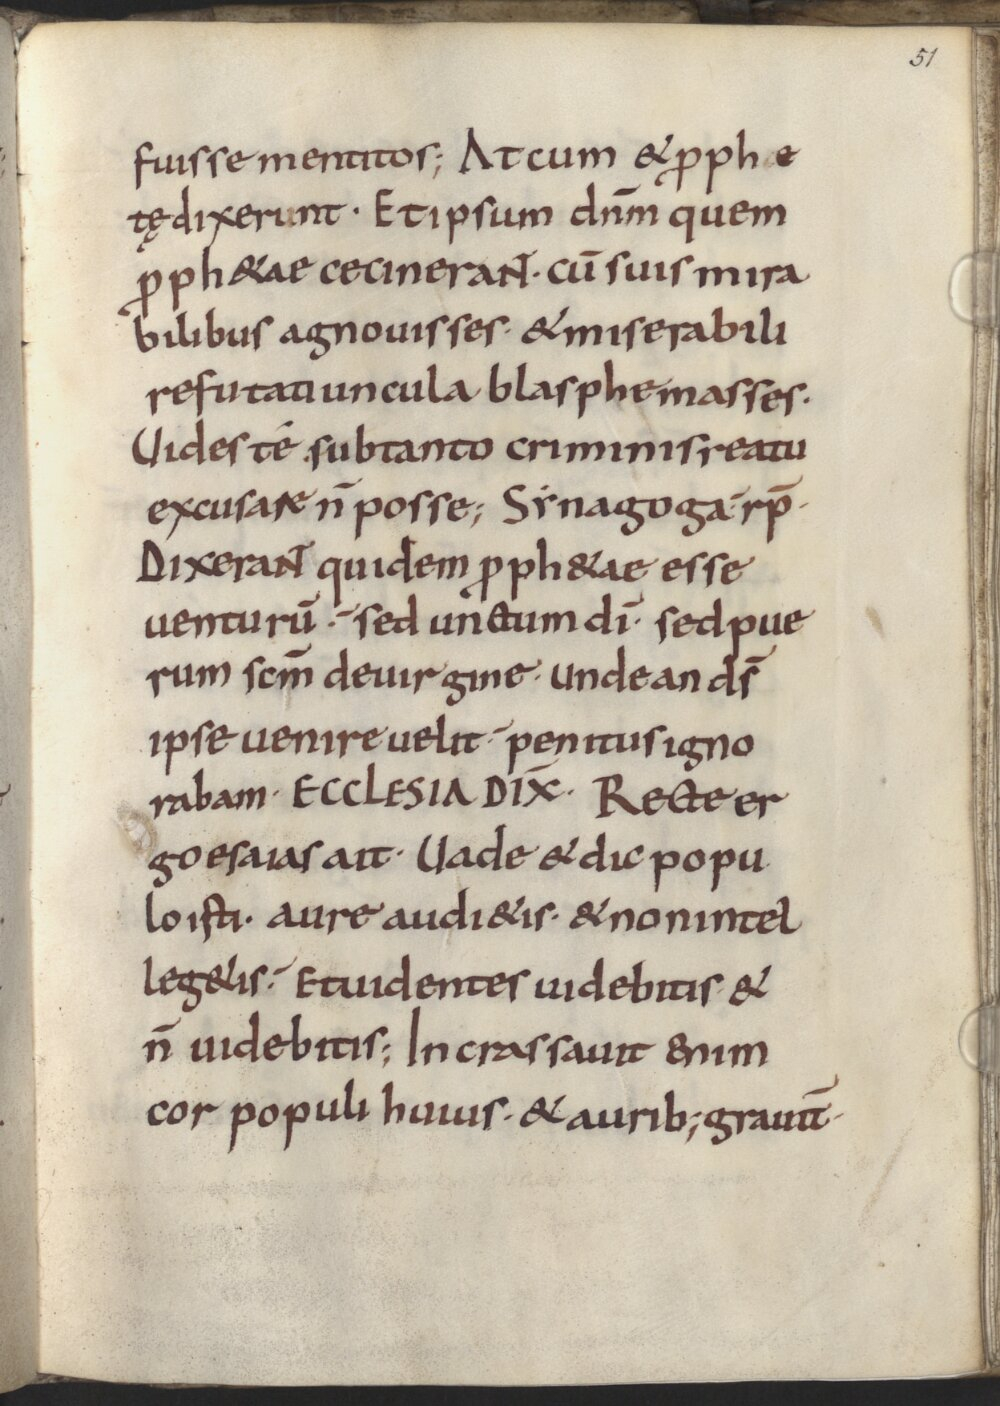 51
fuisse mentitos; At cum & p̱phe
tę dixerunt · Et ipsum dn̄m quem
p̱ph&ae cecineraɴt · cū suis mira
bilibus agnouisses · & miserabili
refutatiuncula blasphemasses ·
Uides té sub tanto criminis reatu
excusare n̄ posse; Synagoga rp̄ ·
Dixeraɴt quidem p̱ph&ae esse
uenturū · sed unctum dī · sed pue
rum sc̄m de uirgine · unde an ds̄
ipse uenire uelit · penitus igno
rabam · ECCLESIA DIX̄ · Recte er
go esaias ait · Uade & dic popu
lo isti · aure audi&is · & non intel
leg&is · Et uidentes uidebitis &
n̄ uidebitis; Incrassauit enim
cor populi huius · & aurib; grauit̄ ·